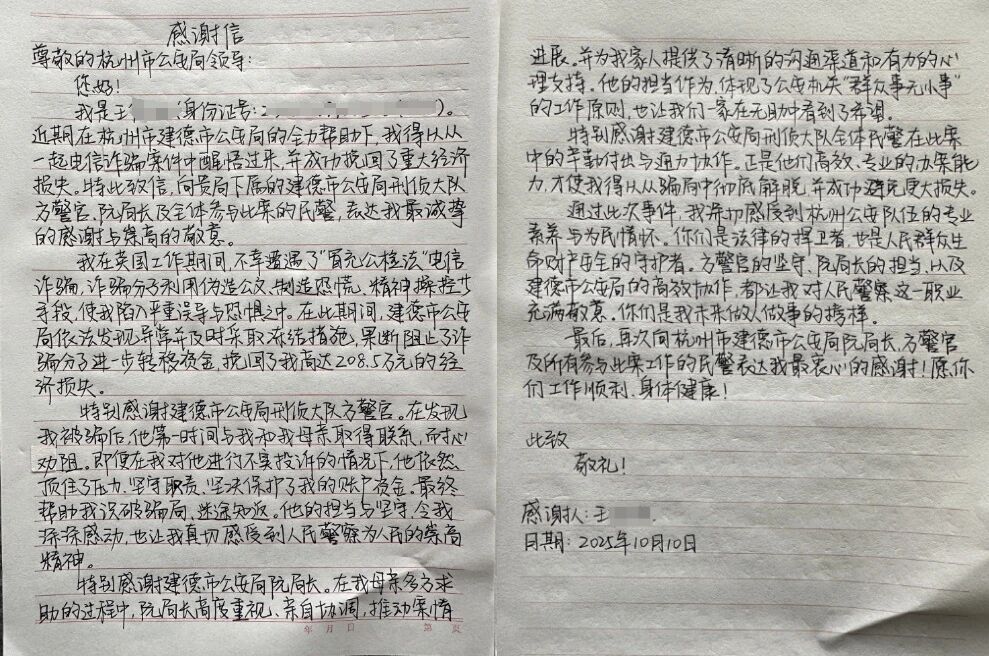 感谢信
尊敬的杭州市公安局领导：
您好！
我是王 （身份证号：2 ）。
近期在杭州市建德市公安局的全力帮助下，我得以从
一起电信诈骗案件中醒悟过来，并成功挽回了重大经济
损失。特此致信，向贵局下属的建德市公安局刑侦大队
方警官、阮局长及全体参与此案的民警，表达我最诚挚
的感谢与崇高的敬意。
我在英国工作期间，不幸遭遇了“冒充公检法”电信
诈骗，诈骗分子利用伪造公文、制造恐慌、精神操控等
手段，使我陷入严重误导与恐惧之中。在此期间，建德市公安
局依法发现异常并及时采取冻结措施，果断阻止了诈
骗分子进一步转移资金，挽回了我高达208.5万元的经
济损失。
特别感谢建德市公安局刑侦大队方警官。在发现
我被骗后，他第一时间与我和我母亲取得联系，耐心
劝阻。即便在我对他进行不实投诉的情况下，他依然
顶住了压力、坚守职责、坚决保护了我的账户资金。最终
帮助我识破骗局、迷途知返。他的担当与坚守，令我
深深感动，也让我真切感受到人民警察为人民的崇高
精神。
特别感谢建德市公安局阮局长。在我母亲多方求
助的过程中，阮局长高度重视、亲自协调，推动案情
年 月 日 第 页
进展。并为我家人提供了清晰的沟通渠道和有力的心
理支持。他的担当作为，体现了公安机关“群众事无小事”
的工作原则，也让我们一家在无助中看到了希望。
特别感谢建德市公安局刑侦大队全体民警在此案
中的辛勤付出与通力协作。正是他们高效、专业的办案能
力，才使我得以从骗局中彻底解脱，并成功避免更大损失。
通过此次事件，我深切感受到杭州公安队伍的专业
素养与为民情怀。你们是法律的捍卫者，也是人民群众生
命财产安全的守护者。方警官的坚守、阮局长的担当，以及
建德市公安局的高效协作，都让我对人民警察这一职业
充满敬意。你们是我未来做人做事的榜样。
最后，再次向杭州市建德市公安局阮局长、方警官
及所有参与此案工作的民警表达我最衷心的感谢！愿你
们工作顺利、身体健康！
此致
敬礼！
感谢人：王
日期：2025年10月10日